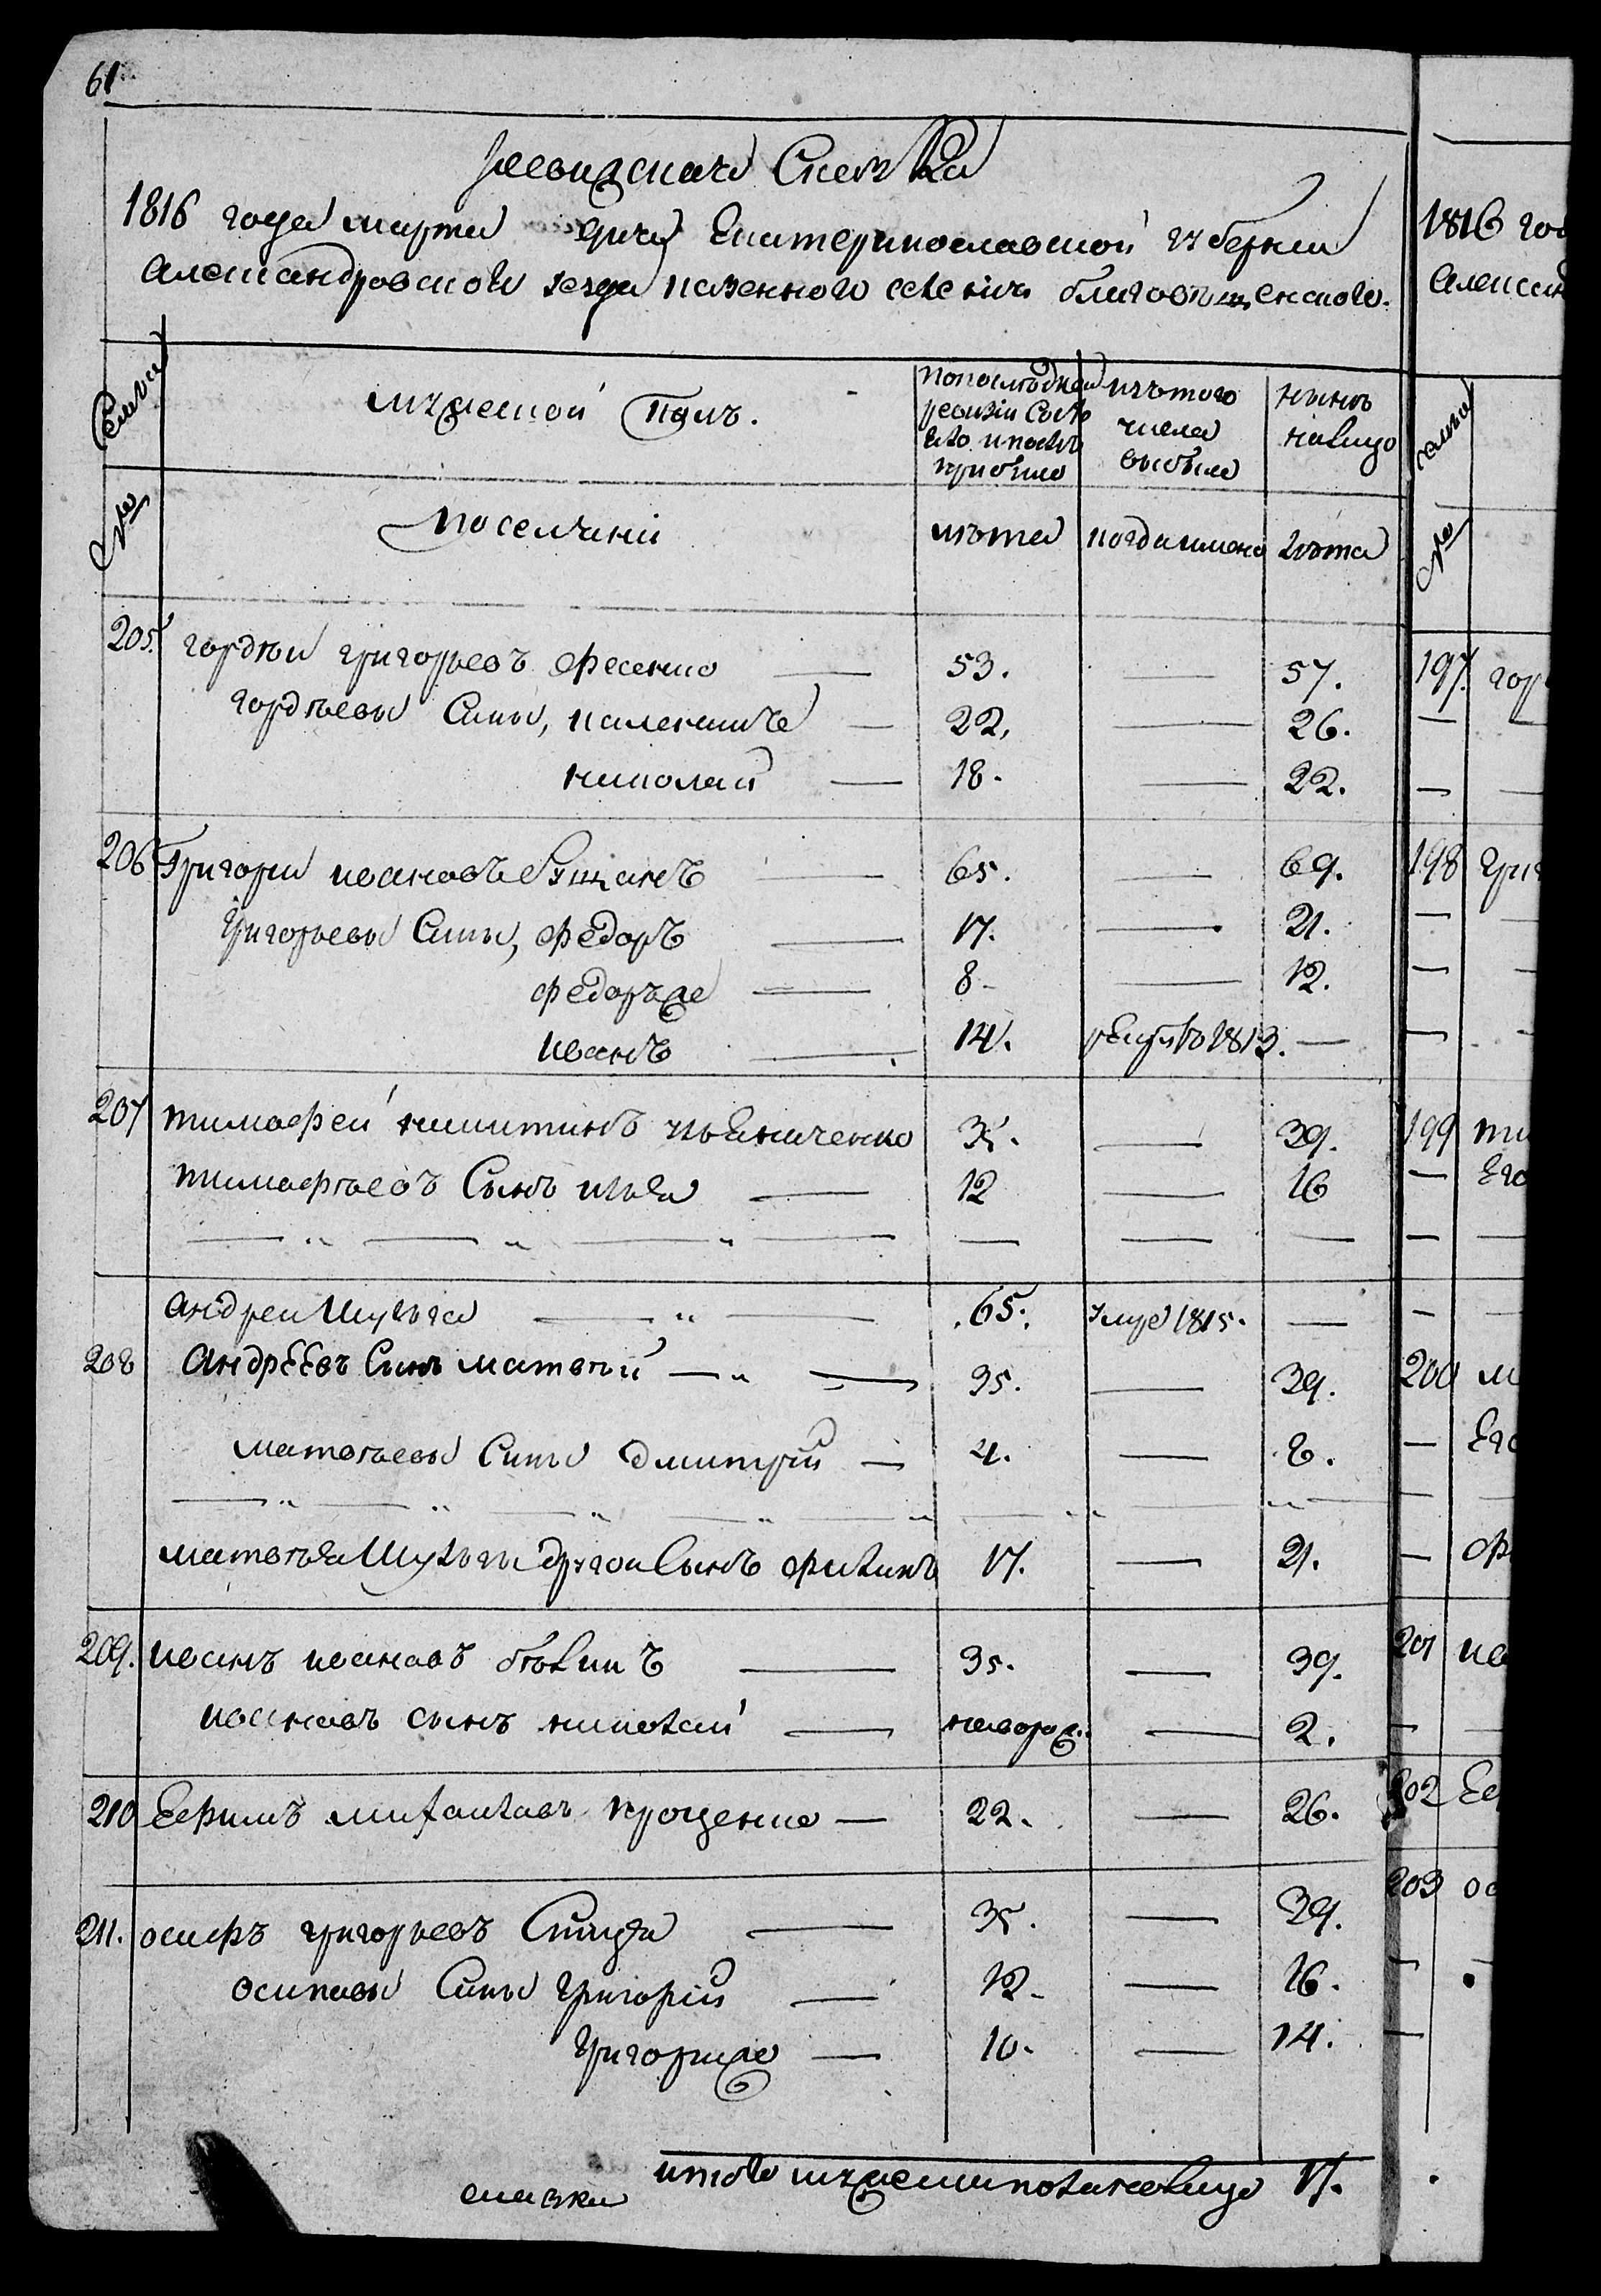 61
ревизская Сказка
1816 года марта дня Екатеринославской губернии
Александровского уезда казенного селения благовѣщенского.
Семьи
мужеской полъ.
попоследней ревизии Состояло и после прибыло
изътого числа выбыло
нынѣ налицо
№
поселяни
лѣта
когда имено
лѣта
205. гордѣи григорьевъ фесенко — 53. — 57.
гордѣевы Сины, калениче — 22, — 26.
николай — 18. — 22.
206 Григори ивановъ — 65. — 69.
григорьевы Сины, федоръ — 17. — 21.
федоръже — 8 — 12.
иванъ — 14. рекрутъ 1813. —
207 тимофей никитинъ — 35. — 39.
тимофѣевъ Сынъ илья — 12 — 16
андреи Шульга — 65. умре 1815. —
208 андрЕЕвъ Синъ матвѣй — 35. — 39.
матвѣевы Сины дмитрий — 4. — 8.
матвѣя Шульги другои Сынъ филипъ 17. — 21.
209. иванъ ивановъ бѣликъ — 35. — 39.
ивановъ сынъ николай — новорож. — 2.
210 Ефимъ михайловъ проценко — 22. — 26.
211. осифъ григорьевъ Спица — 35. — 39.
осиповы Сины григорій — 12 — 16.
григориже — 10. — 14.
итого мужеска пола налицо 17.
сказки
1816 год
Алексан
семьи
№
197. гор
198 григ
199 ти
Его
200 м
Его
ф
201 ив
202 Еф
203 ос